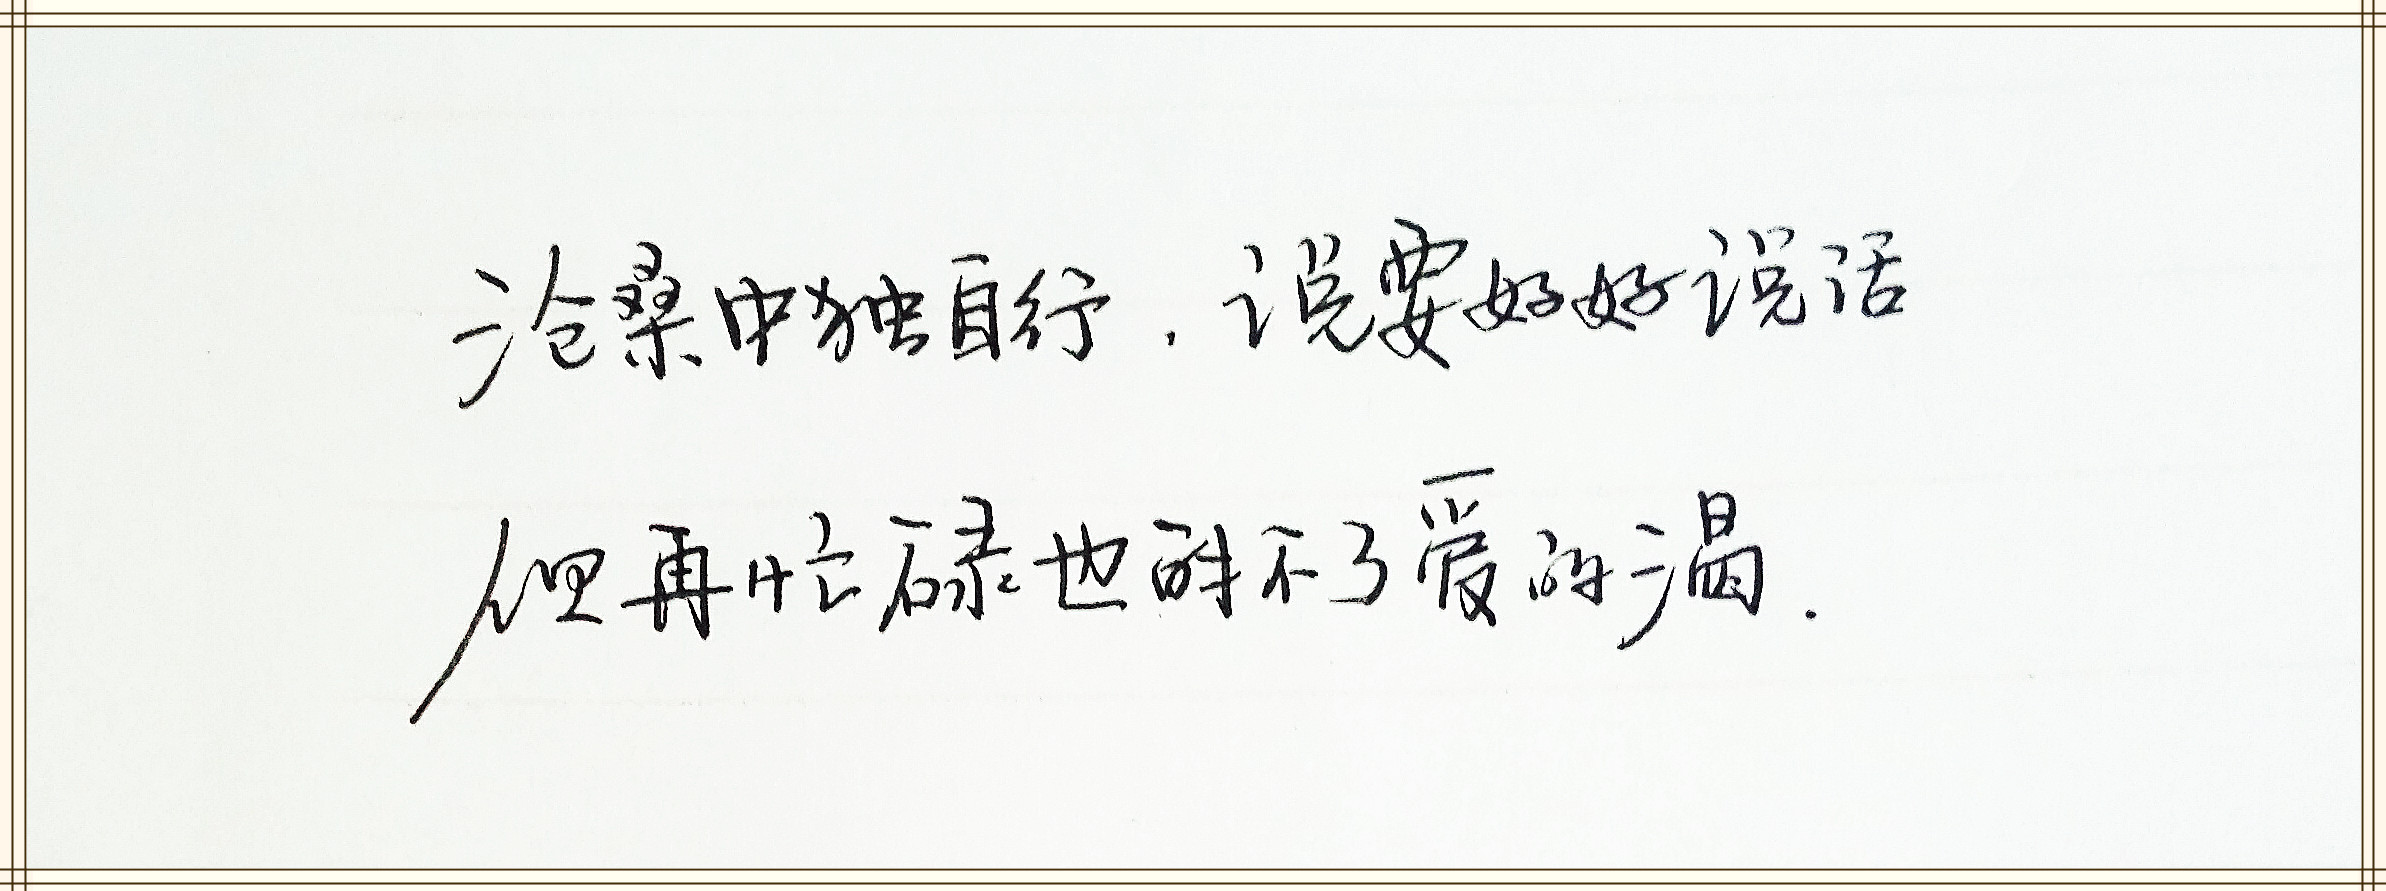 沧桑中独自行.说要好好说话
但再忙碌也解不了爱的渴.